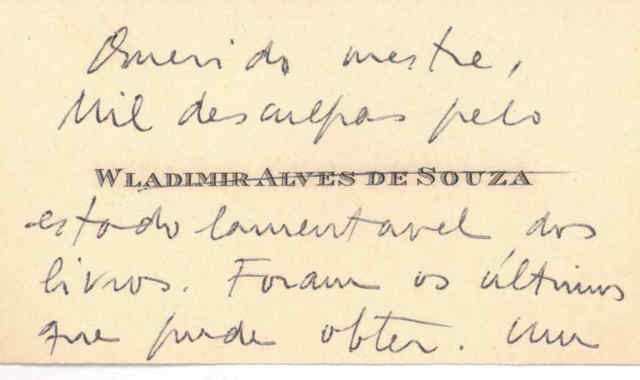 Querido mestre,
Mil desculpas pelo
WLADIMIR ALVES DE SOUZA
estado lamentavel dos
livros. Foram os últimos
que pude obter. Um